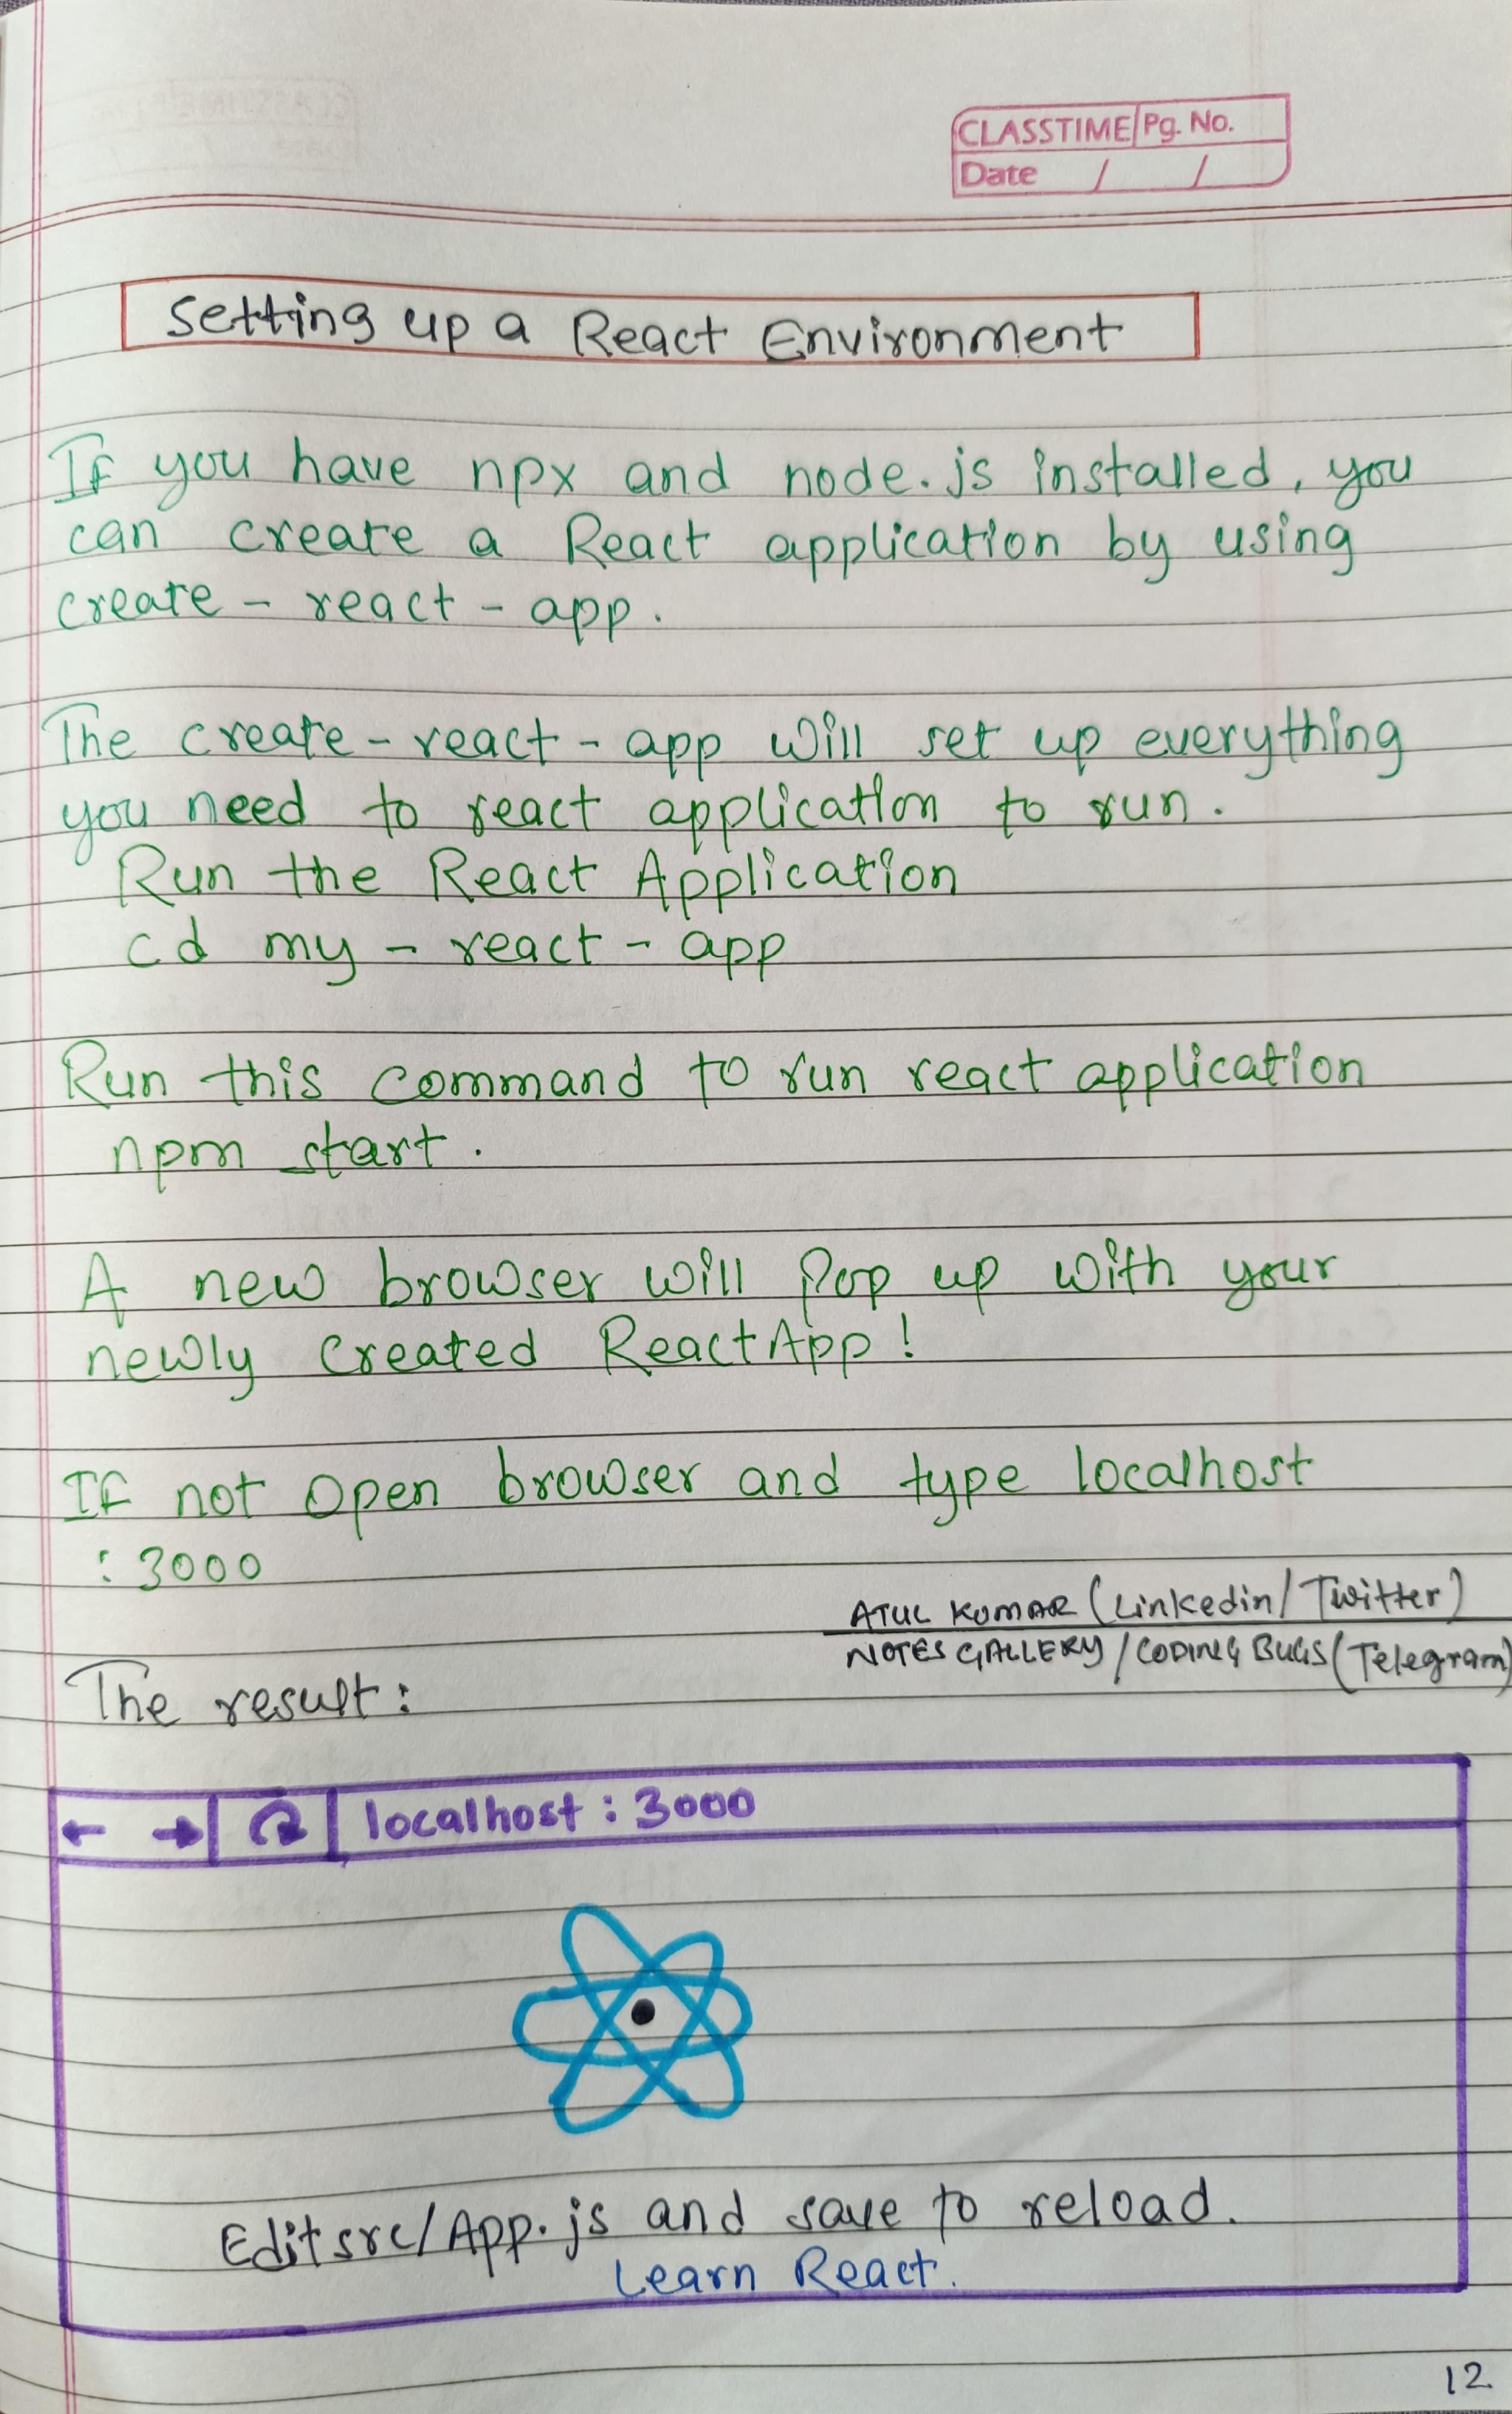 CLASSTIME Pg. No.
Date / /
Setting up a React Environment
If you have npx and node.js installed, you
can create a React application by using
create - react - app.
The create - react - app will set up everything
you need to react application to run.
Run the React Application
cd my - react - app
Run this command to run react application
npm start.
A new browser will Pop up with your
newly created ReactApp!
If not open browser and type localhost
: 3000
ATUL KUMAR (Linkedin/Twitter)
NOTES GALLERY / CODING BUGS (Telegram)
The result:
localhost : 3000
Edit src/App.js and save to reload.
Learn React.
12